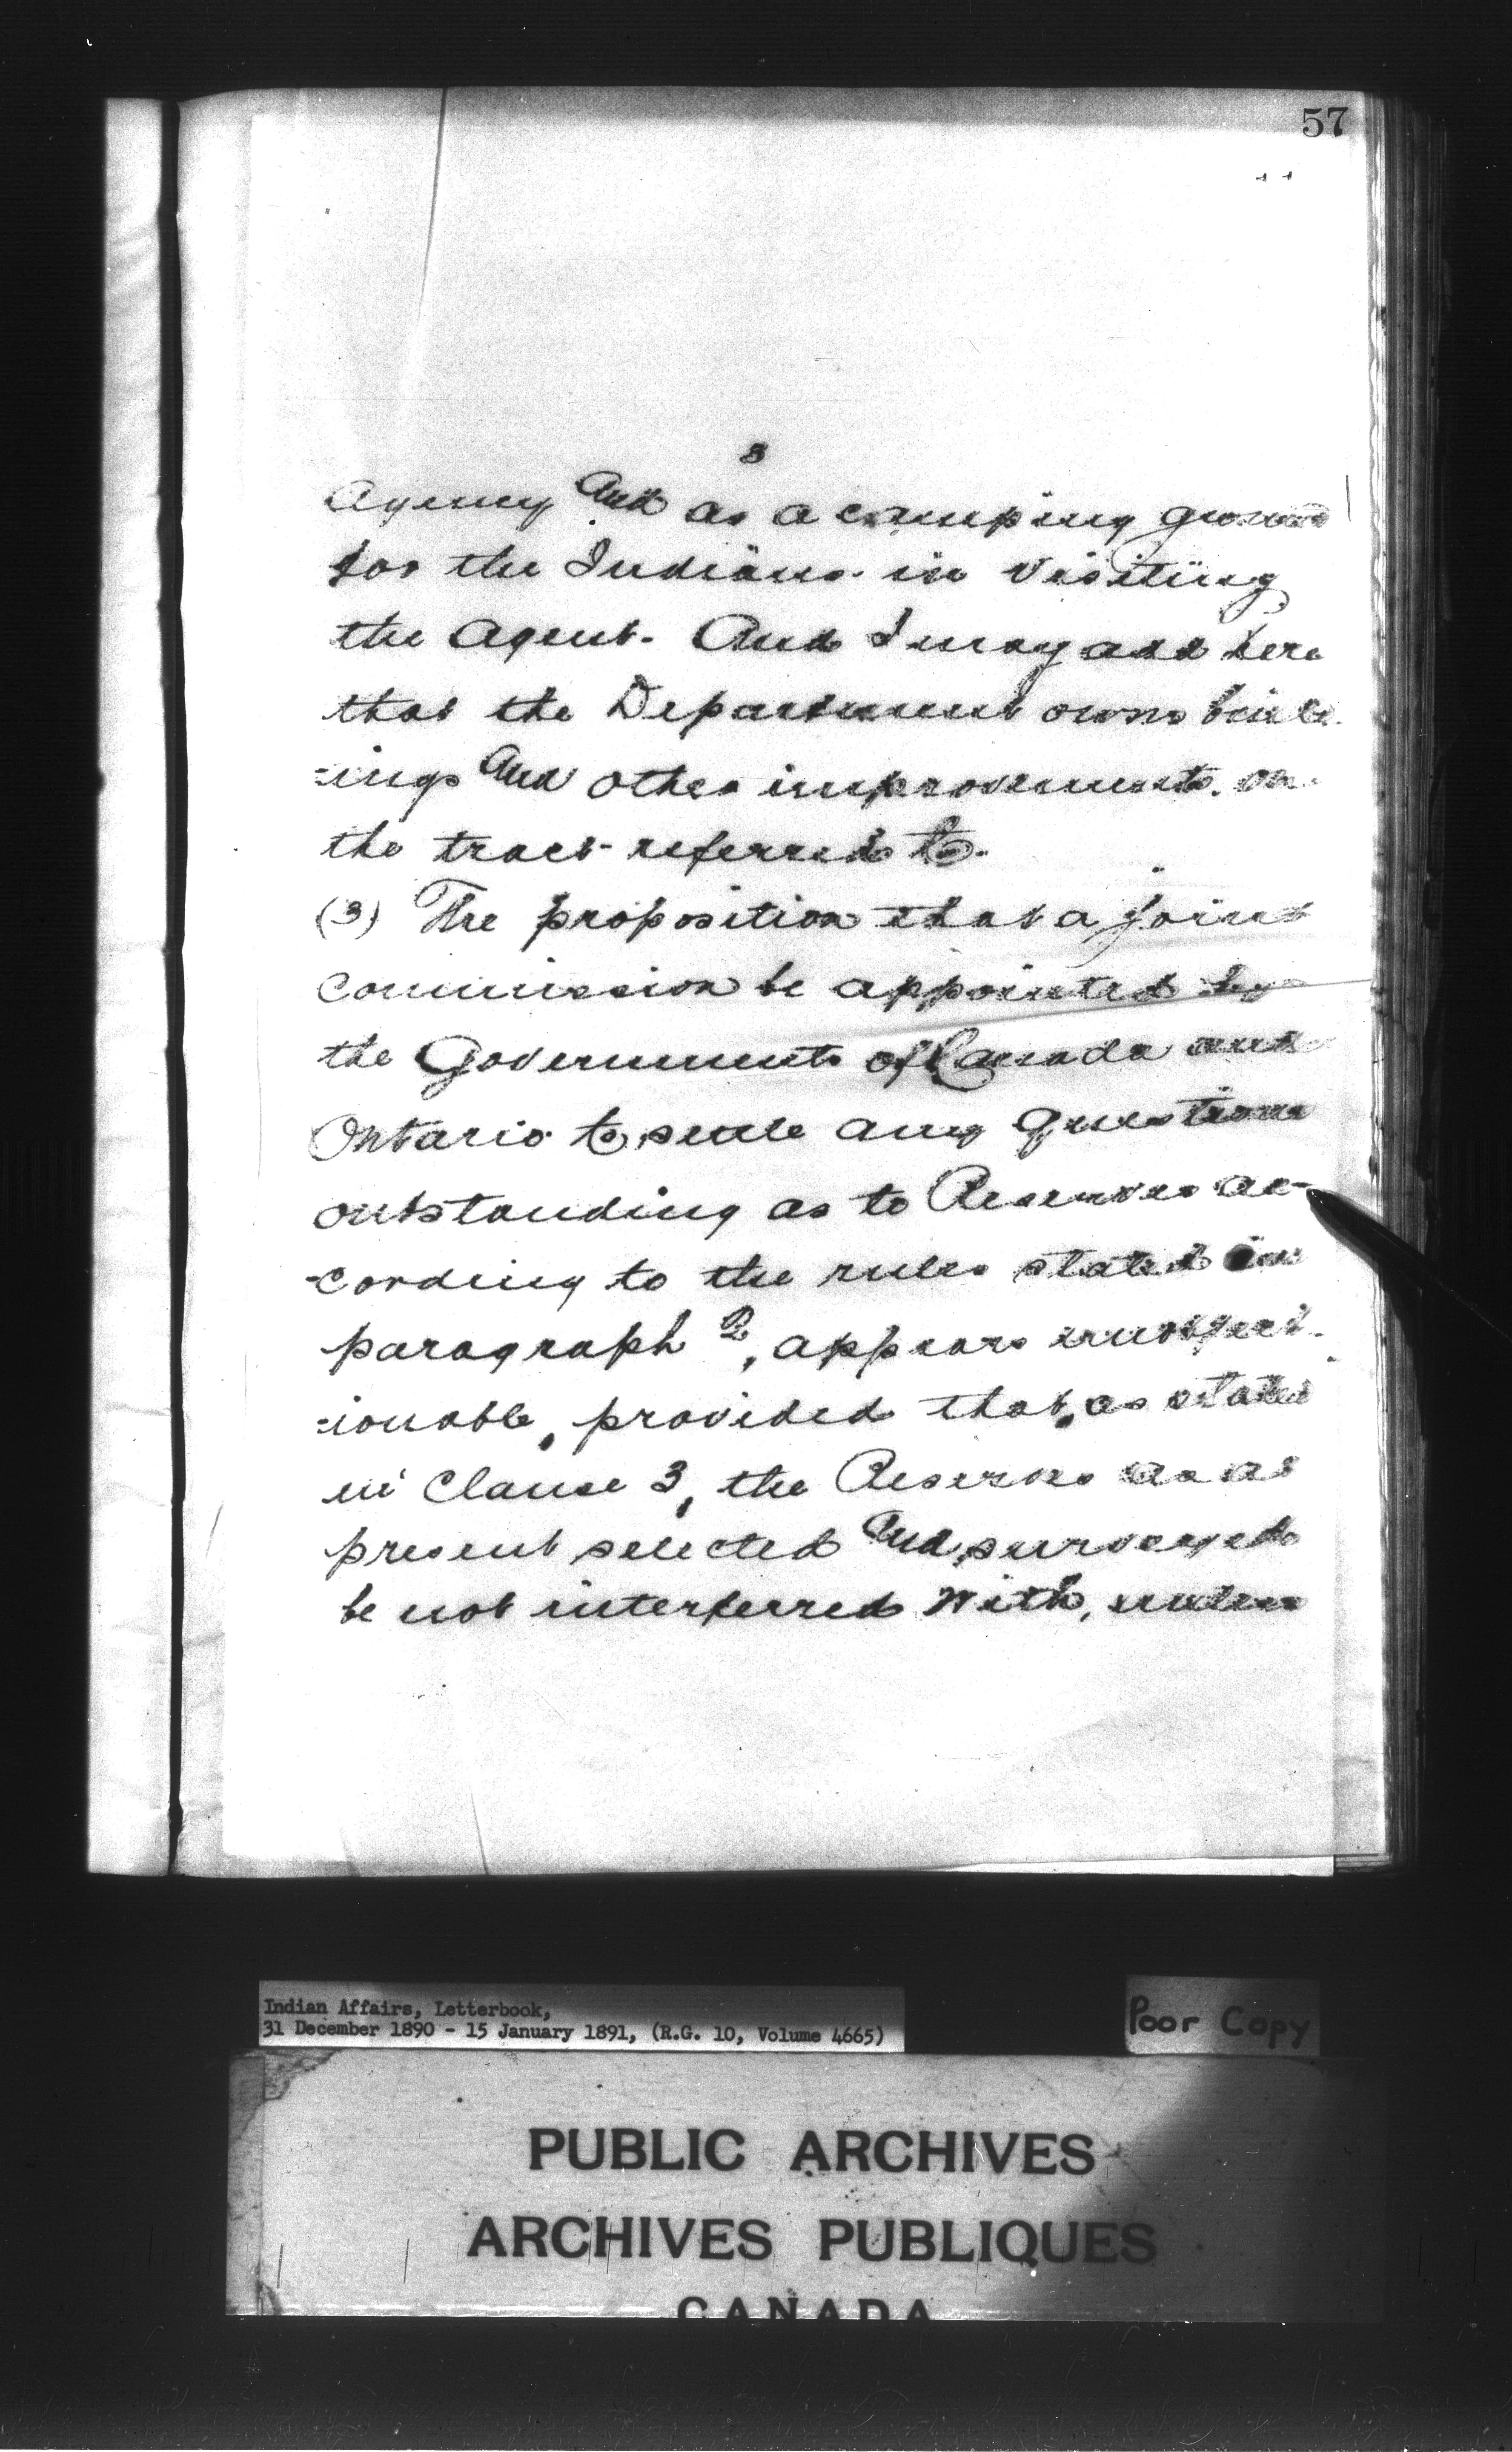 57
3
Agency and as a camping ground
for the Indians in visiting
the Agent. And I may add here
that the Department owns build
-ings and other improvements on
the tract referred to.
(3) The proposition that a joint
Commission be appointed by
the Governments of Canada and
Ontario to settle any questions
outstanding as to Reserves ac-
-cording to the rules stated in
paragraph 2, appears unobject-
-ionable, provided that, as stated
in Clause 3, the Reserves as at
present selected and surveyed
be not interferred with, unless
Indian Affairs, Letterbook,
31 December 1890 - 15 January 1891, (R.G. 10, Volume 4665)
Poor Copy
PUBLIC ARCHIVES
ARCHIVES PUBLIQUES
CANADA